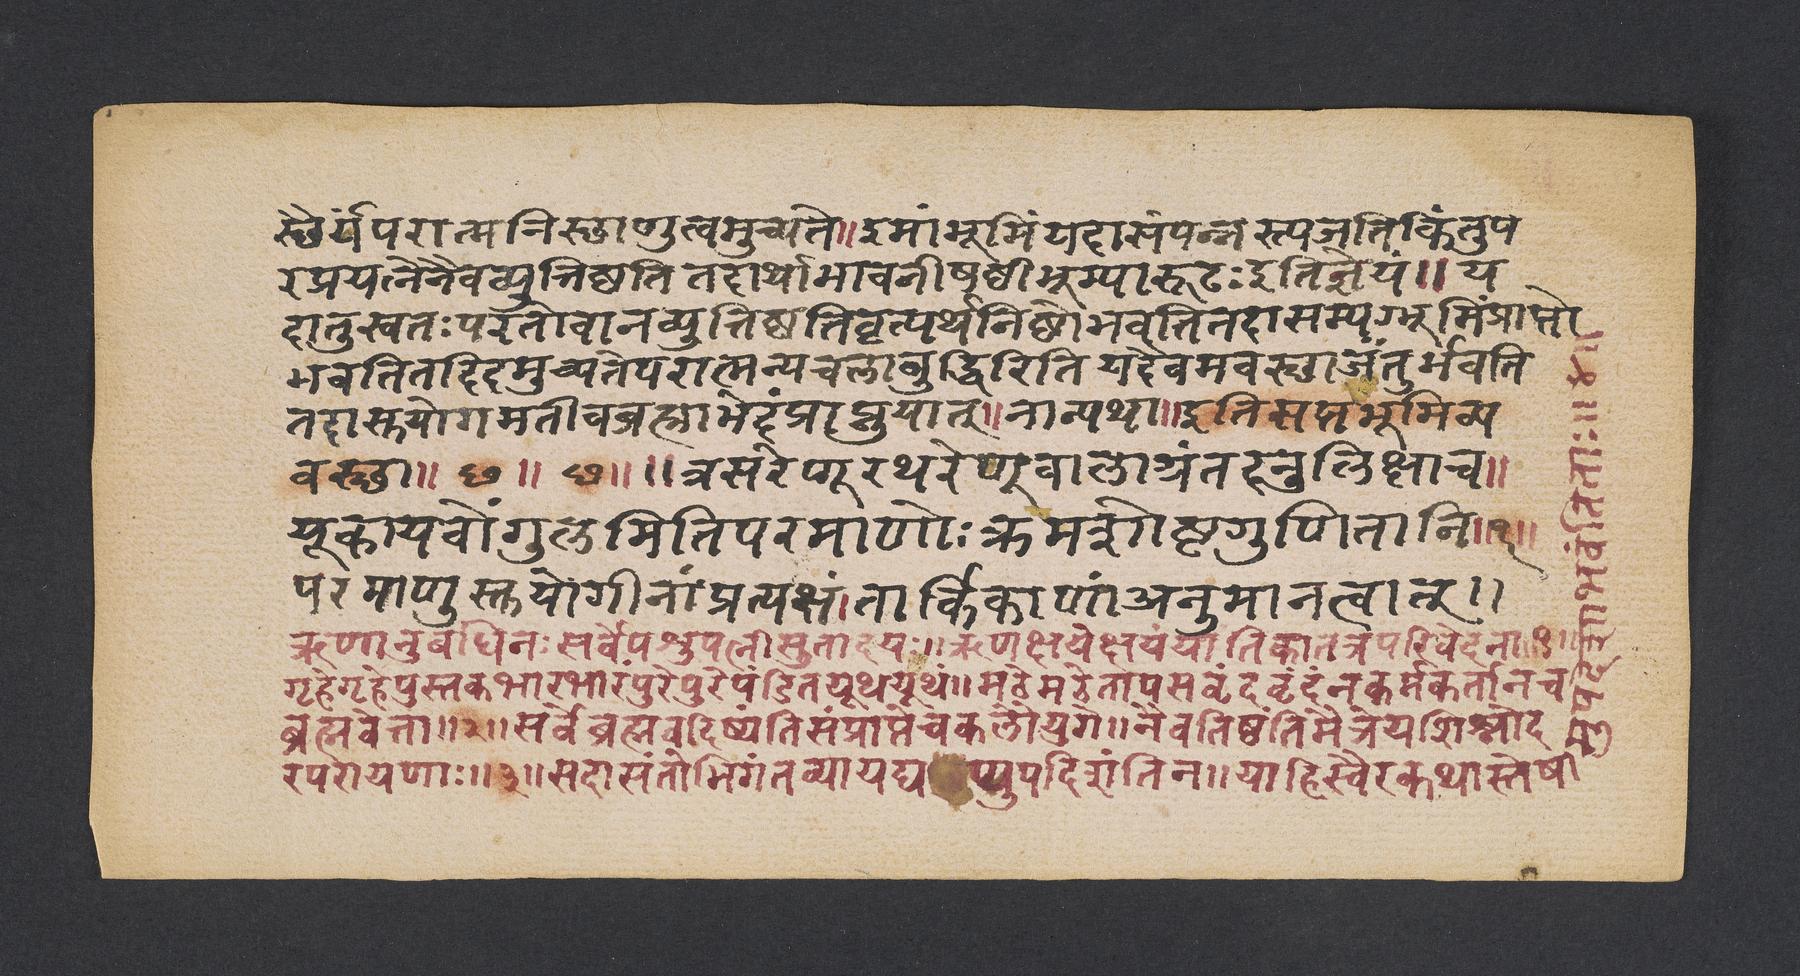 स्थैर्यं परात्मनि स्थाणुत्वमुच्यते॥ इमां भूमिं यदा संपन्न स्पृजति किंतु प
रप्रयत्नेनैव व्युत्तिष्ठति तदार्थाभावनी षष्ठी भूम्यारूढः इति ज्ञेयं॥ य
दा तु स्वतः परतो वा न व्युत्तिष्ठति वृत्यर्थनिष्ठो भवति तदा सम्यग्भूमिं प्राप्तो
भवति तदिदमुच्यते परात्मन्यचला बुद्धिरिति यदैवमवस्था जंतुर्भवति
तदास्तयोगमतीव ब्रह्माभेदं प्राप्नुयात्॥ नान्यथा॥ इति सप्तभूमिव्य
वस्था॥ छ॥ छ॥ ॥ त्रसरेणू रथरेणू वालाग्रं तदनु लिक्षा च॥
यूका यवोंगुलमिति परमाणोः क्रमशोष्टगुणितानि॥१॥
परमाणुस्तु योगीनां प्रत्यक्षं। तार्किकाणां अनुमानत्वात्॥
ऋणानुबंधिनः सर्वे पशुपत्नीसुतादयः॥ ऋणक्षये क्षयं यांति का तत्र परिवेदना॥१॥
गृहे गृहे पुस्तकभारभारं पुरे पुरे पंडितयूथयूथं॥ मठे मठे तापसवृंदवृंदं न कर्मकर्ता न च
ब्रह्मवेत्ता॥२॥ सर्वे ब्रह्म वदिष्यंति संप्राप्ते च कलौ युगे॥ नैव तिष्ठंति मैत्रेय शिश्नोद
रपरायणाः॥३॥ सदा संतोभिगंतव्या यद्य प्युपदिशंति न॥ या हि स्वैरकथास्तेषा
मुपदेशा भवंति ताः॥४॥